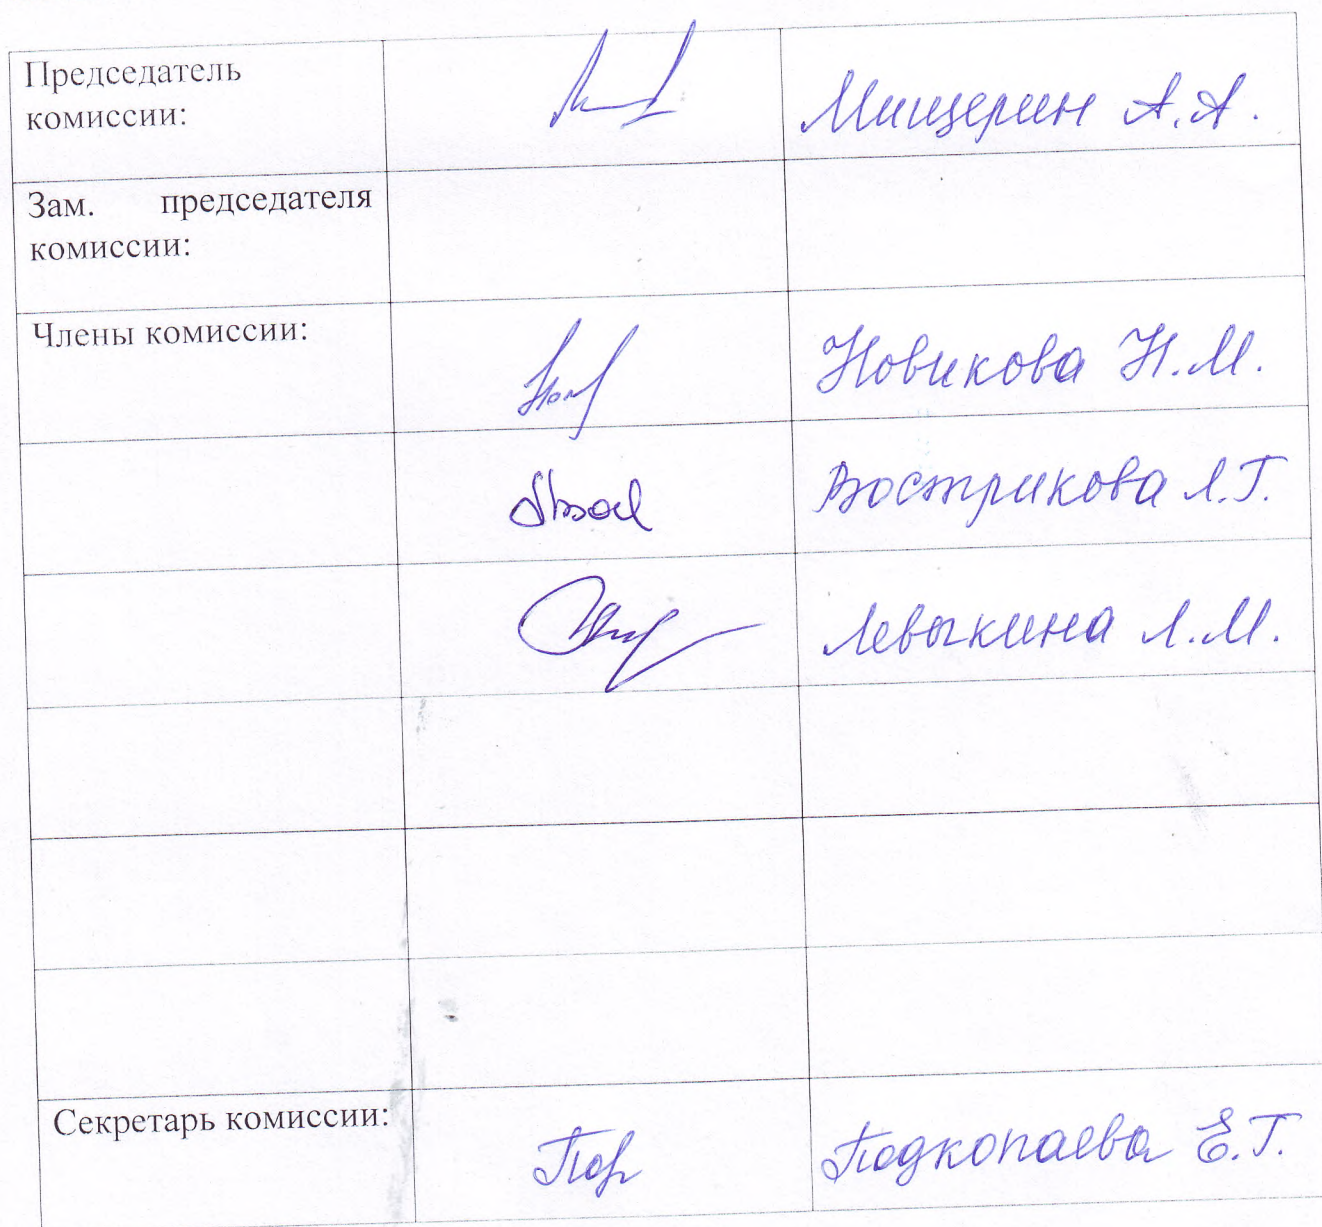 Председатель
комиссии:
Мищерин А.А.
Зам. председателя
комиссии:
Члены комиссии:
Новикова Н.М.
Вострикова Л.Г.
Левыкина Л.М.
Секретарь комиссии:
Подкопаева Е.Г.